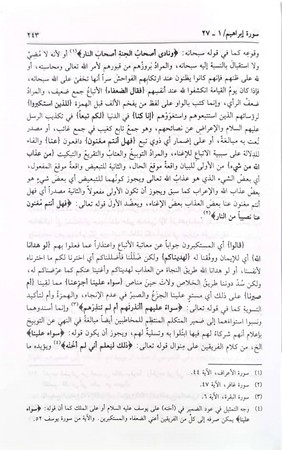 سورة إبراهيم/ ١ - ٢٧ ٢٤٣
وقوعه كما في قوله سبحانه: ﴿ونادى أصحاب الجنة أصحاب النار﴾(١) أو لأنه لا مضيّ
ولا استقبال بالنسبة إليه سبحانه، والمراد بروزهم من قبورهم لأمر الله تعالى ومحاسبته، أو
لله على ظنهم فإنهم كانوا يظنون عند ارتكابهم الفواحش سراً أنها تخفى على الله سبحانه،
فإذا كان يوم القيامة انكشفوا لله عند أنفسهم ﴿فقال الضعفاء﴾ الأتباع جمع ضعيف، والمراد
ضعف الرأي، وإنما كتب بالواو على لفظ من يفخم الألف قبل الهمزة ﴿للذين استكبروا﴾
لرؤسائهم الذين استتبعوهم واستغووهم ﴿إنا كنا﴾ في الدنيا ﴿لكم تبعا﴾ في تكذيب الرسل
عليهم السلام والإعراض عن نصائحهم، وهو جمع تابع كغيب في جمع غائب، أو مصدر
نُعت به مبالغة، أو على إضمار أي ذوي تبع ﴿فهل أنتم مغنون﴾ دافعون ﴿عنا﴾ والفاء
للدلالة على سببية الاتباع للإغناء، والمراد التوبيخ والعتاب والتقريع والتبكيت ﴿من عذاب
الله من شيء﴾ من الأولى للبيان واقعة موقع الحال، والثانية للتبعيض واقعة موقع المفعول،
أي بعض الشيء الذي هو عذاب الله تعالى ويجوز كونهما للتبعيض أي بعض شيء هو
بعض عذاب الله والإعراب كما سبق ويجوز أن تكون الأولى مفعولاً والثانية مصدراً أي فهل
أنتم مغنون عنا بعض العذاب بعض الإغناء، ويعضّد الأول قوله تعالى: ﴿فهل أنتم مغنون
عنا نصيباً من النار﴾(٢).
﴿قالوا﴾ أي المستكبرون جواباً عن معاتبة الأتباع واعتذاراً عما فعلوا بهم ﴿لو هدانا
الله﴾ أي للإيمان ووفقنا له ﴿لهديناكم﴾ ولكن ضلَلْنا فأضللناكم أي اخترنا لكم ما اخترناه
لأنفسنا، أو لو هدانا الله طريق النجاة من العذاب لهديناكم وأغنينا عنكم كما عرّضناكم له،
ولكن سُدّ دوننا طريق الخلاص ولات حين مناص ﴿سواء علينا أجزعنا﴾ مما لقينا ﴿أم
صبرنا﴾ على ذلك أي مستوٍ علينا الجزعُ والصبرُ في عدم الإنجاء، والهمزةُ وأم لتأكيد
التسوية كما في قوله تعالى: ﴿سواء عليهم أأنذرتهم أم لم تنذرهم﴾(٣) وإنما أسندوهما
ونسبوا استواءهما إلى ضمير المتكلم المنتظِم للمخاطبين أيضاً مبالغة في النهي عن التوبيخ
بإعلام أنهم شركاء لهم فيما ابتُلوا به وتسليةً لهم، ويجوز أن يكون قوله: ﴿سواء علينا﴾
الخ، من كلام الفريقين على مِنوال قوله تعالى: ﴿ذلك ليعلم أني لم أخنه﴾(٤) ويؤيده ما
(١) سورة الأعراف، الآية ٤٤.
(٢) سورة غافر، الآية ٤٧.
(٣) سورة البقرة، الآية ٦.
(٤) وجه التمثيل في عود الضمير في (أخنه) على يوسف عليه السلام أو على الملك كما أن قوله: ﴿سواء
علينا﴾ يمكن صرفه إلى كل من الفريقين أعني الضعفاء والمستكبرين. والآية من سورة يوسف ٥٢.